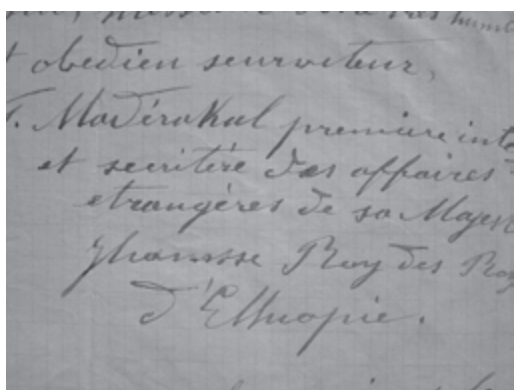 t obedien seurviteur,
T. Madérakal premiure inte
et secritére das affaires
etrangéres de sa Majest
Yhannsse Roy des Roy
d'Ethiopie.